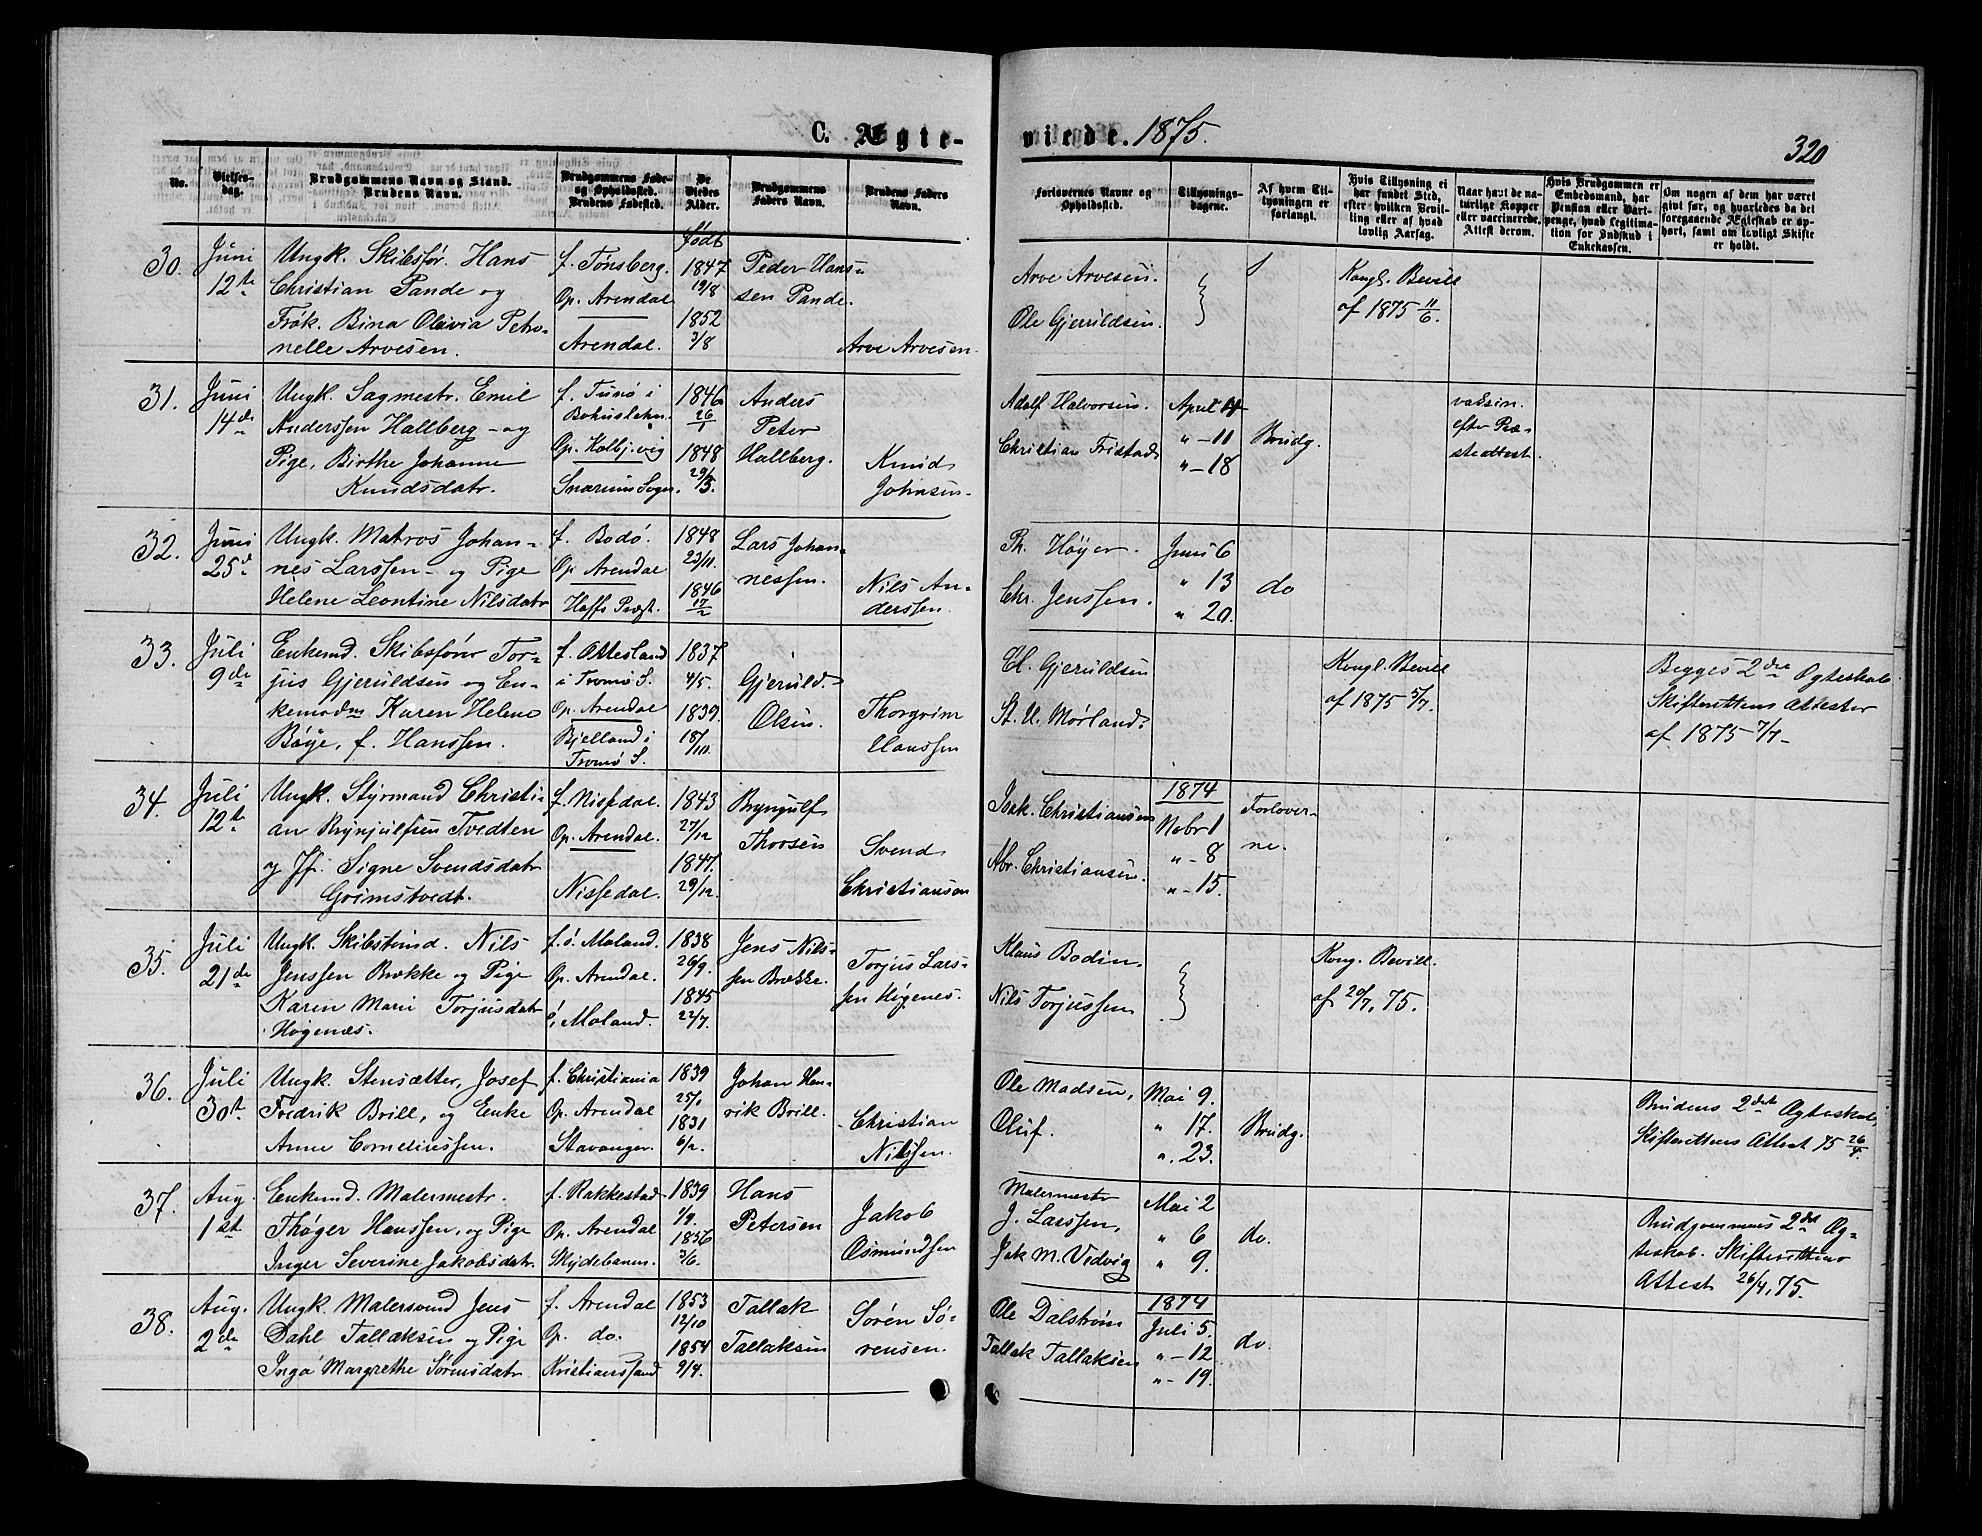 C. Ægte-
viede. 1875.
320
No.
Vielses-
dag.
Brudgommens Navn og Stand.
Brudens Navn.
Brudgommens Føde-
og Opholdssted.
Brudens Fødested.
De
Viedes
Alder.
Brudgommens
Faders Navn.
Brudens Faders
Navn.
Forlovernes Navne og
Opholdssted.
Tillysnings-
dagene.
Af hvem Til-
lysningen er
forlangt.
Hvis Tillysning ei
har fundet Sted,
efter hvilken Bevil-
ling eller af hvad
lovlig Aarsag.
Naar havt de na-
turlige Kopper
eller vaccinerede.
Attest derom.
Hvis Brudgommen er
Embedsmand, har
Pension eller Vart-
penge, hvad Legitima-
tion for Indskud i
Enkekassen.
Om nogen af dem har været
gift før, og hvorledes da det
foregaaende Ægteskab er op-
hørt, samt om lovligt Skifte
er holdt.
30.
Juni
12te
Ungk. Skibsfør. Hans
Christian Pande og
Frøk. Bina Olivia Petro-
nelle Arvesen.
f. Tønsberg.
Op. Arendal.
Arendal.
født
1847
19/8
1852
3/8
Peder Han-
sen Pande.
Arve Arvesen.
Arve Arvesen.
Ole Gjeruldsen.
Kongl. Bevill
af 1875 11/6.
31.
Juni
14de
Ungk. Sagmestr. Emil
Anderssen Hallberg - og
Pige, Birthe Johanne
Knudsdatr.
f. Tunø i
Bohuslehn.
Op. Kolbj.vig
1846
26/1
1848
29/3.
Anders
Peter
Hallberg.
Knud
Johnsen.
Adolf Halvorsen.
Christian Fristad
April 4
" - 11
" - 18
Brudg.
vaksin.
efter Præ-
steattest.
32.
Juni
25de
Ungk. Matros Johan-
nes Larssen - og Pige
Helene Leontine Nilsdatr
f. Bodø.
Op. Arendal
Hoffs Prægt.
1848
23/11.
1846
17/2
Lars Johan-
nessen.
Nils An-
derssen.
Th. Høyer.
Chr. Jenssen.
Juni 6
" 13
" 20.
do
33.
Juli
9de
Enkemd. Skibsfører Tor-
jus Gjeruldsen og En-
kemadm Karen Helene
Bøye, f. Hanssen.
f. Alvesland
i Tromø S.
Op. Arendal
Bjelland i
Tromø S.
1837
4/5.
1839.
18/10.
Gjeruld
Olsen.
Thorgrim
Hanssen
El. Gjeruldsen
St. U. Mørland.
Kongl. Bevill
af 1875 5/7.
Begges 2det Ægteskab
Skifterettens Attester
af 1875 7/7-
34.
Juli
12te
Ungk. Styrmand Christi-
an Brynjulfsen Tvedten
og Jfr. Signe Svendsdatr
Grimstvedt.
f. Nissedal.
Op. Arendal.
Nissedal.
1843
27/12
1847.
29/12
Bryngulf
Thorsen
Svend
Christiansen
Isak. Christiansen
Abr. Christiansen.
1874
Nobr 1
" - 8
" - 15.
Forlover-
ne.
35.
Juli
21de
Ungk. Skibstmd. Nils
Jenssen Brække og Pige
Karen Marie Torjusdatr
Høgenæs.
f. ø. Moland.
Op. Arendal.
ø. Moland.
1838
26/9.
1845
22/7.
Jens Nils-
sen Brække.
Torjus Lars-
sen Høgenes.
Klaus Bodin.
Nils Torjussen
Kong. Bevill.
af 20/7, 75.
36.
Juli
30te
Ungk. Stensætter, Josef
Fredrik Brill, og Enke
Anne Corneliussen.
f. Christiania
Op. Arendal
Stavanger.
1839
25/1
1831
6/12.
Johan Hen-
rik Brill.
Christian
Nilssen.
Ole Madsen,
Oluf.
Mai 9.
" 17.
" 23.
Brudg.
Brudens 2det Ægteskab,
Skifterettens Attest 75 26/4.
37.
Aug.
1ste
Enkemd. Malermestr.
Thøger Hanssen, og Pige
Inger Severine Jakobsdatr.
f. Rakkestad
Op. Arendal
Skydebanen.
1839
1/9.
1836
3/6.
Hans
Petersen
Jakob
Osmundsen
Malermestr
J. Larssen,
Jak M. Vedvig
Mai 2
" 6
" 9.
do.
Brudgommens 2det Æg-
teskab. Skifterettens
Attest 26/4, 75.
38.
Aug.
2den
Ungk. Malersvend Jens
Dahl Tallaksen og Pige
Inga Margrethe Sørensdatr
f. Arendal
Op. do.
Kristianssand
1853
12/10
1854
9/4.
Tallak
Tallaksen
Søren Sø-
rensen.
Ole Dalstrøm
Tallak Tallaksen
1874
Juli 5.
" - 12
" - 19.
do.